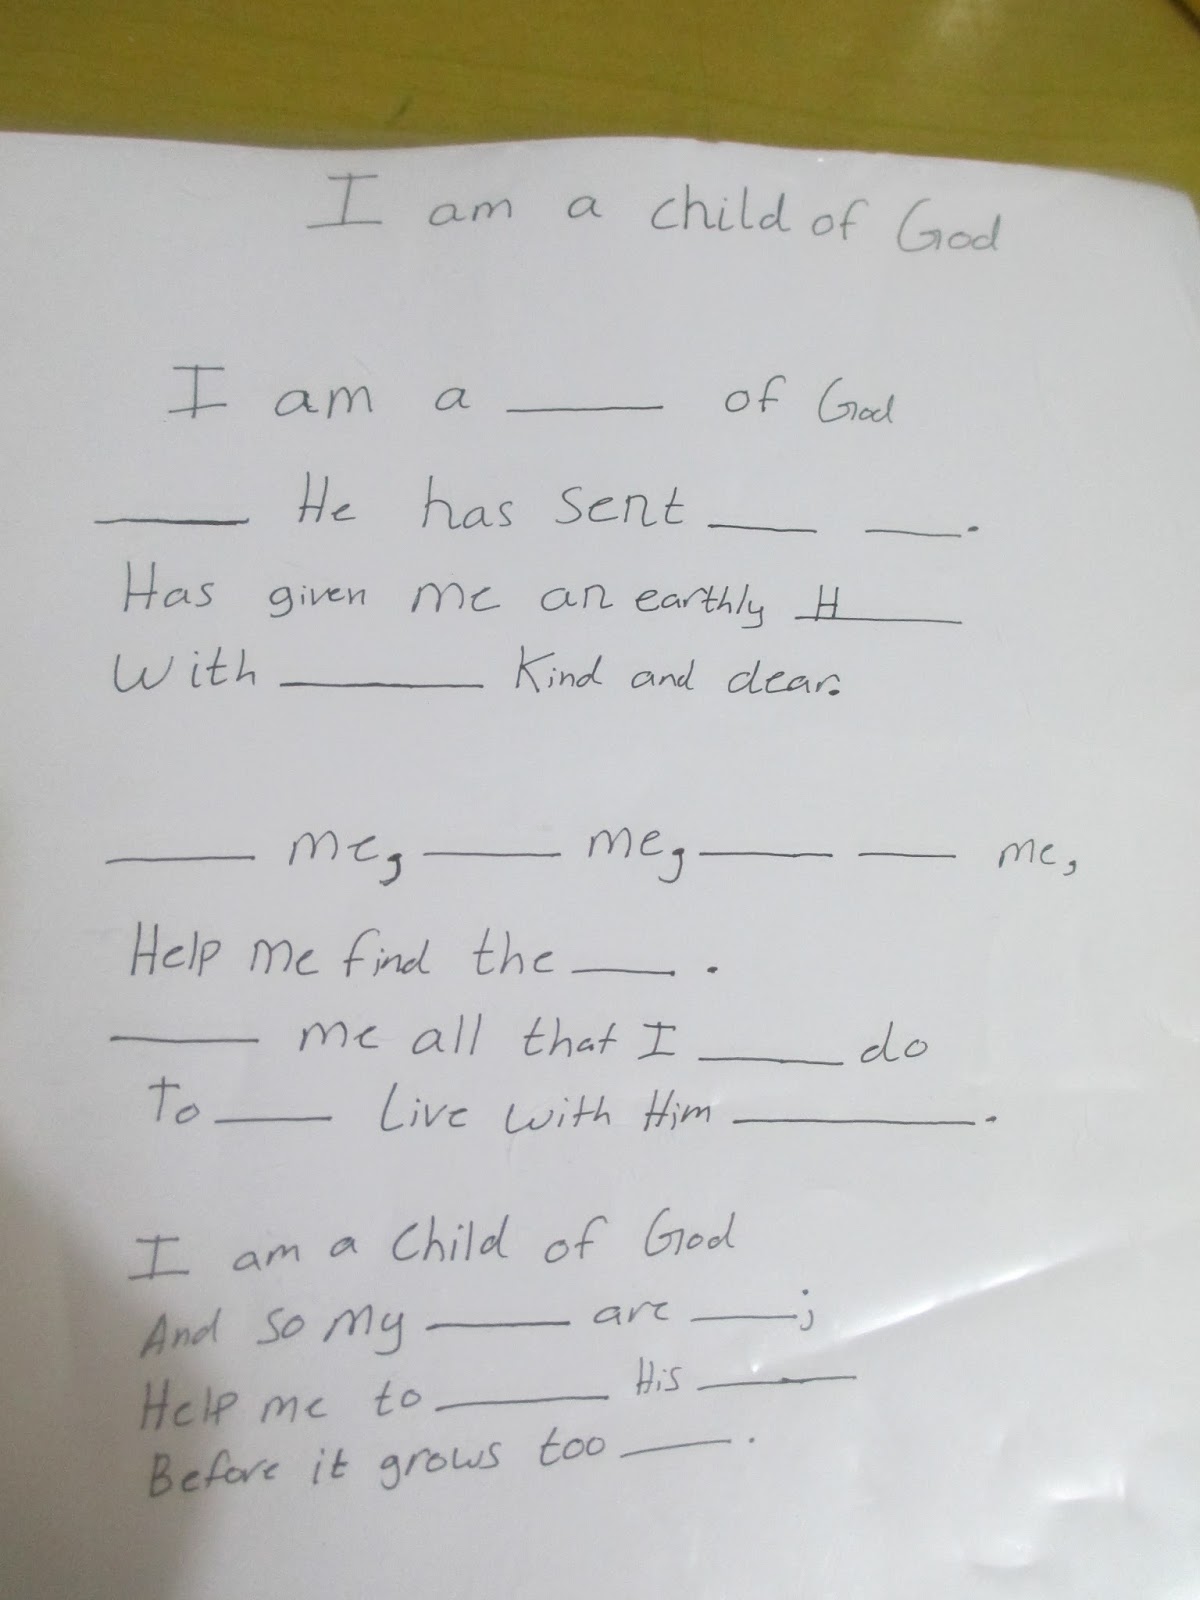 I am a child of God
I am a ____ of God
____ He has sent ___ ___.
Has given me an earthly H____
With ______ Kind and dear.
____ me, ____ me, ____ ___ me,
Help me find the ___.
____ me all that I ____ do
To ___ Live with Him _______.
I am a Child of God
And so my ____ are ___;
Help me to _____ His ____
Before it grows too ___.